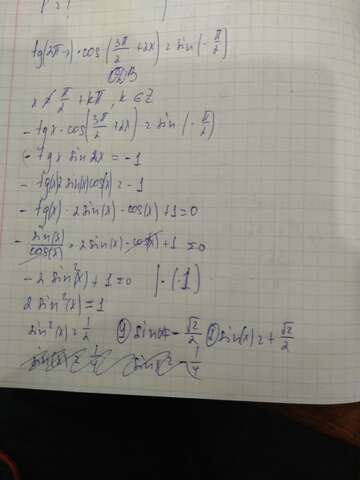 tg(2π-x)·cos(3π/2 + 2x) = sin(-π/2)
ОДЗ
x ≠ π/2 + kπ, k ∈ Z
- tgx · cos(3π/2 + 2x) = sin(-π/2)
- tgx sin2x = -1
- tg(x) 2 sin(x) cos(x) = -1
- tg(x) · 2 sin(x) · cos(x) + 1 = 0
- sin(x)/cos(x) · 2 sin(x) · cos(x) + 1 = 0
- 2 sin²(x) + 1 = 0 | · (-1)
2 sin²(x) = 1
sin²(x) = 1/2 1) sinx = - √2/2 2) sin(x) = + √2/2
sin(x) = 1/4 sinx = - 1/4